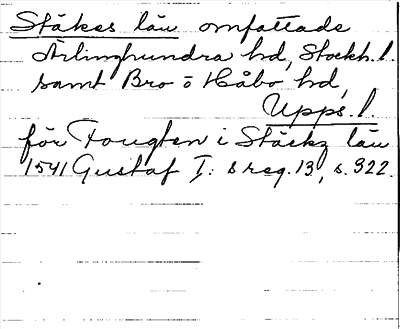 Stäkes län omfattade
Ärlinghundra hd, Stockh. l.
samt Bro o Håbo hd,
Upps. l.
för Fougten i Stäckz län
1541 Gustaf I:s reg. 13, s. 322.